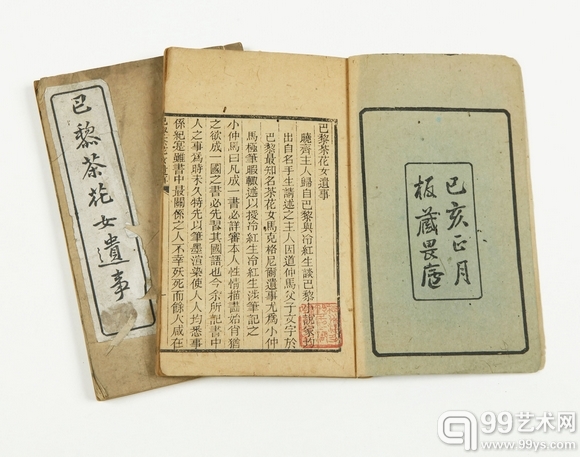 巴黎茶花女遺事
巴黎茶花女遺事
曉齋主人歸自巴黎與冷紅生談巴黎小說家均
出自名手生請述之主人因道仲馬父子文字於
巴黎最知名茶花女馬克格尼爾遺事尤爲小仲
馬極筆暇輒述以授冷紅生冷紅生涉筆記之
小仲馬曰凡成一書必詳審本人性情描畫始肖猶
之欲成一國之書必先習其國語也今余所記書中
人之事爲時未久特先以筆墨渲染使人人均悉事
係紀實雖書中最關係之人不幸殀死而餘人咸在
己亥正月
板藏畏廬
99艺术网
www.99ys.com